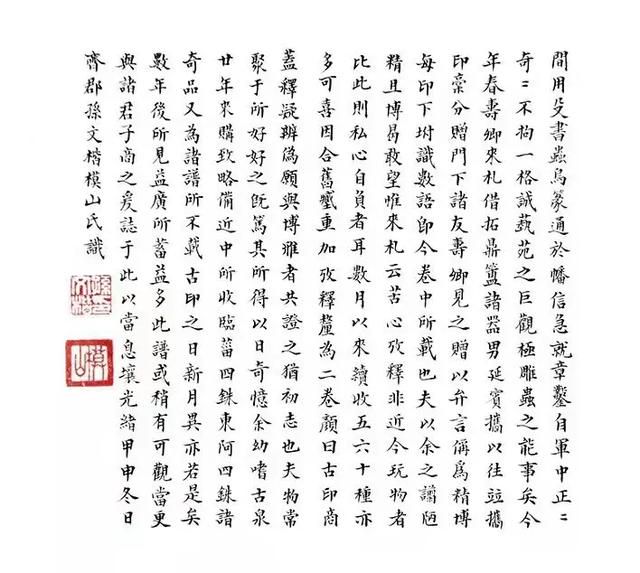 間用殳書蟲鳥篆通於幡信急就章鑿自軍中正〻
奇〻不拘一格誠藝苑之巨觀極雕蟲之能事矣今
年春壽卿來札借拓鼎簠諸器男延賓攜以往竝攜
印稾分贈門下諸友壽卿見之贈以弁言稱爲精博
每印下坿識數語即今卷中所載也夫以余之譾陋
精且博曷敢望惟來札云苦心攷釋非近今玩物者
比此則私心自負者耳數月以來續收五六十種亦
多可喜因合舊重加攷釋釐為二卷顏曰古印商
蓋釋疑辨偽願與博雅者共證之猶初志也夫物常
聚于所好好之旣篤其所得以日奇憶余幼嗜古泉
廿年來購致略備近中所收臨菑四銖東阿四銖諸
奇品又為諸譜所不載古印之日新月異亦若是矣
數年後所見益廣所蓄益多此譜或稍有可觀當更
與諸君子商之爰誌于此以當息壤光緒甲申冬日
齊郡孫文楷模山氏識